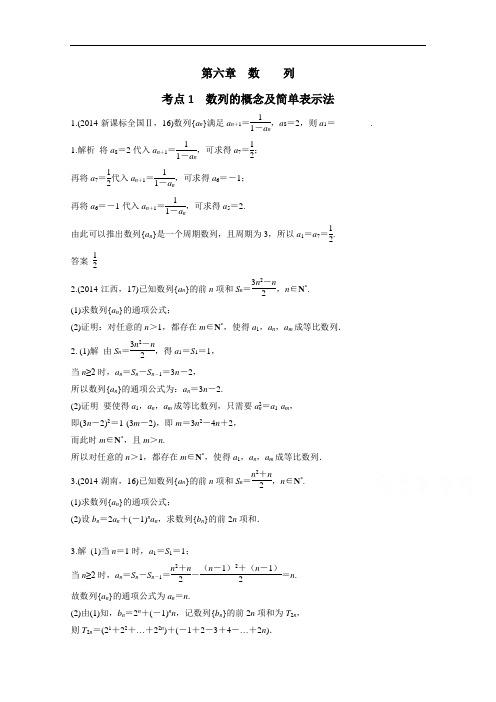 第六章　数　　列
考点1　数列的概念及简单表示法
1.(2014·新课标全国Ⅱ，16)数列{aₙ}满足aₙ₊₁＝1/(1－aₙ)，a₈＝2，则a₁＝________.
1.解析　将a₈＝2代入aₙ₊₁＝1/(1－aₙ)，可求得a₇＝1/2；
再将a₇＝1/2代入aₙ₊₁＝1/(1－aₙ)，可求得a₆＝－1；
再将a₆＝－1代入aₙ₊₁＝1/(1－aₙ)，可求得a₅＝2.
由此可以推出数列{aₙ}是一个周期数列，且周期为3，所以a₁＝a₇＝1/2.
答案　1/2
2.(2014·江西，17)已知数列{aₙ}的前n项和Sₙ＝(3n²－n)/2，n∈N*.
(1)求数列{aₙ}的通项公式；
(2)证明：对任意的n＞1，都存在m∈N*，使得a₁，aₙ，aₘ成等比数列.
2. (1)解　由Sₙ＝(3n²－n)/2，得a₁＝S₁＝1，
当n≥2时，aₙ＝Sₙ－Sₙ₋₁＝3n－2，
所以数列{aₙ}的通项公式为：aₙ＝3n－2.
(2)证明　要使得a₁，aₙ，aₘ成等比数列，只需要aₙ²＝a₁·aₘ，
即(3n－2)²＝1·(3m－2)，即m＝3n²－4n＋2，
而此时m∈N*，且m＞n.
所以对任意的n＞1，都存在m∈N*，使得a₁，aₙ，aₘ成等比数列.
3.(2014·湖南，16)已知数列{aₙ}的前n项和Sₙ＝(n²＋n)/2，n∈N*.
(1)求数列{aₙ}的通项公式；
(2)设bₙ＝2aₙ＋(－1)ⁿaₙ，求数列{bₙ}的前2n项和.
3.解　(1)当n＝1时，a₁＝S₁＝1；
当n≥2时，aₙ＝Sₙ－Sₙ₋₁＝(n²＋n)/2－((n－1)²＋(n－1))/2＝n.
故数列{aₙ}的通项公式为aₙ＝n.
(2)由(1)知，bₙ＝2ⁿ＋(－1)ⁿn，记数列{bₙ}的前2n项和为T₂ₙ，
则T₂ₙ＝(2¹＋2²＋…＋2²ⁿ)＋(－1＋2－3＋4－…＋2n).